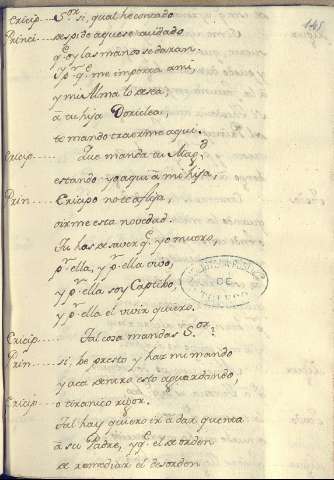 148
Cricip.... S.or si, qual he contado
Princi.... despide aquese cuidado
q.e oy las manos se daran.
Y p.r q.e me importa a mi,
y mi Alma lo desea,
a tu hija Doriclea,
te mando traerme aqui.
Cricip.... Que manda tu Mag.d
estando yo aqui à mi hija,
Prin.... Cricipo no te aflija,
oirme esta novedad.
Tu has de saver q.e yo muero,
p.r ella, y p.r ella vivo,
y p.r ella soy Captibo,
y p.r ella el vivir quiero.
Cricip.... Tal cosa mandas S.or?
Prin.... si, be presto y haz mi mando
y aca dentro esto aguardando,
Cricip.... o tiranico rigor.
Tal hay quiero ir à dar quenta
à su Padre, y q.e el de orden
de remediar el desorden
BIBLIOTECA PUBLICA
DE
TOLEDO